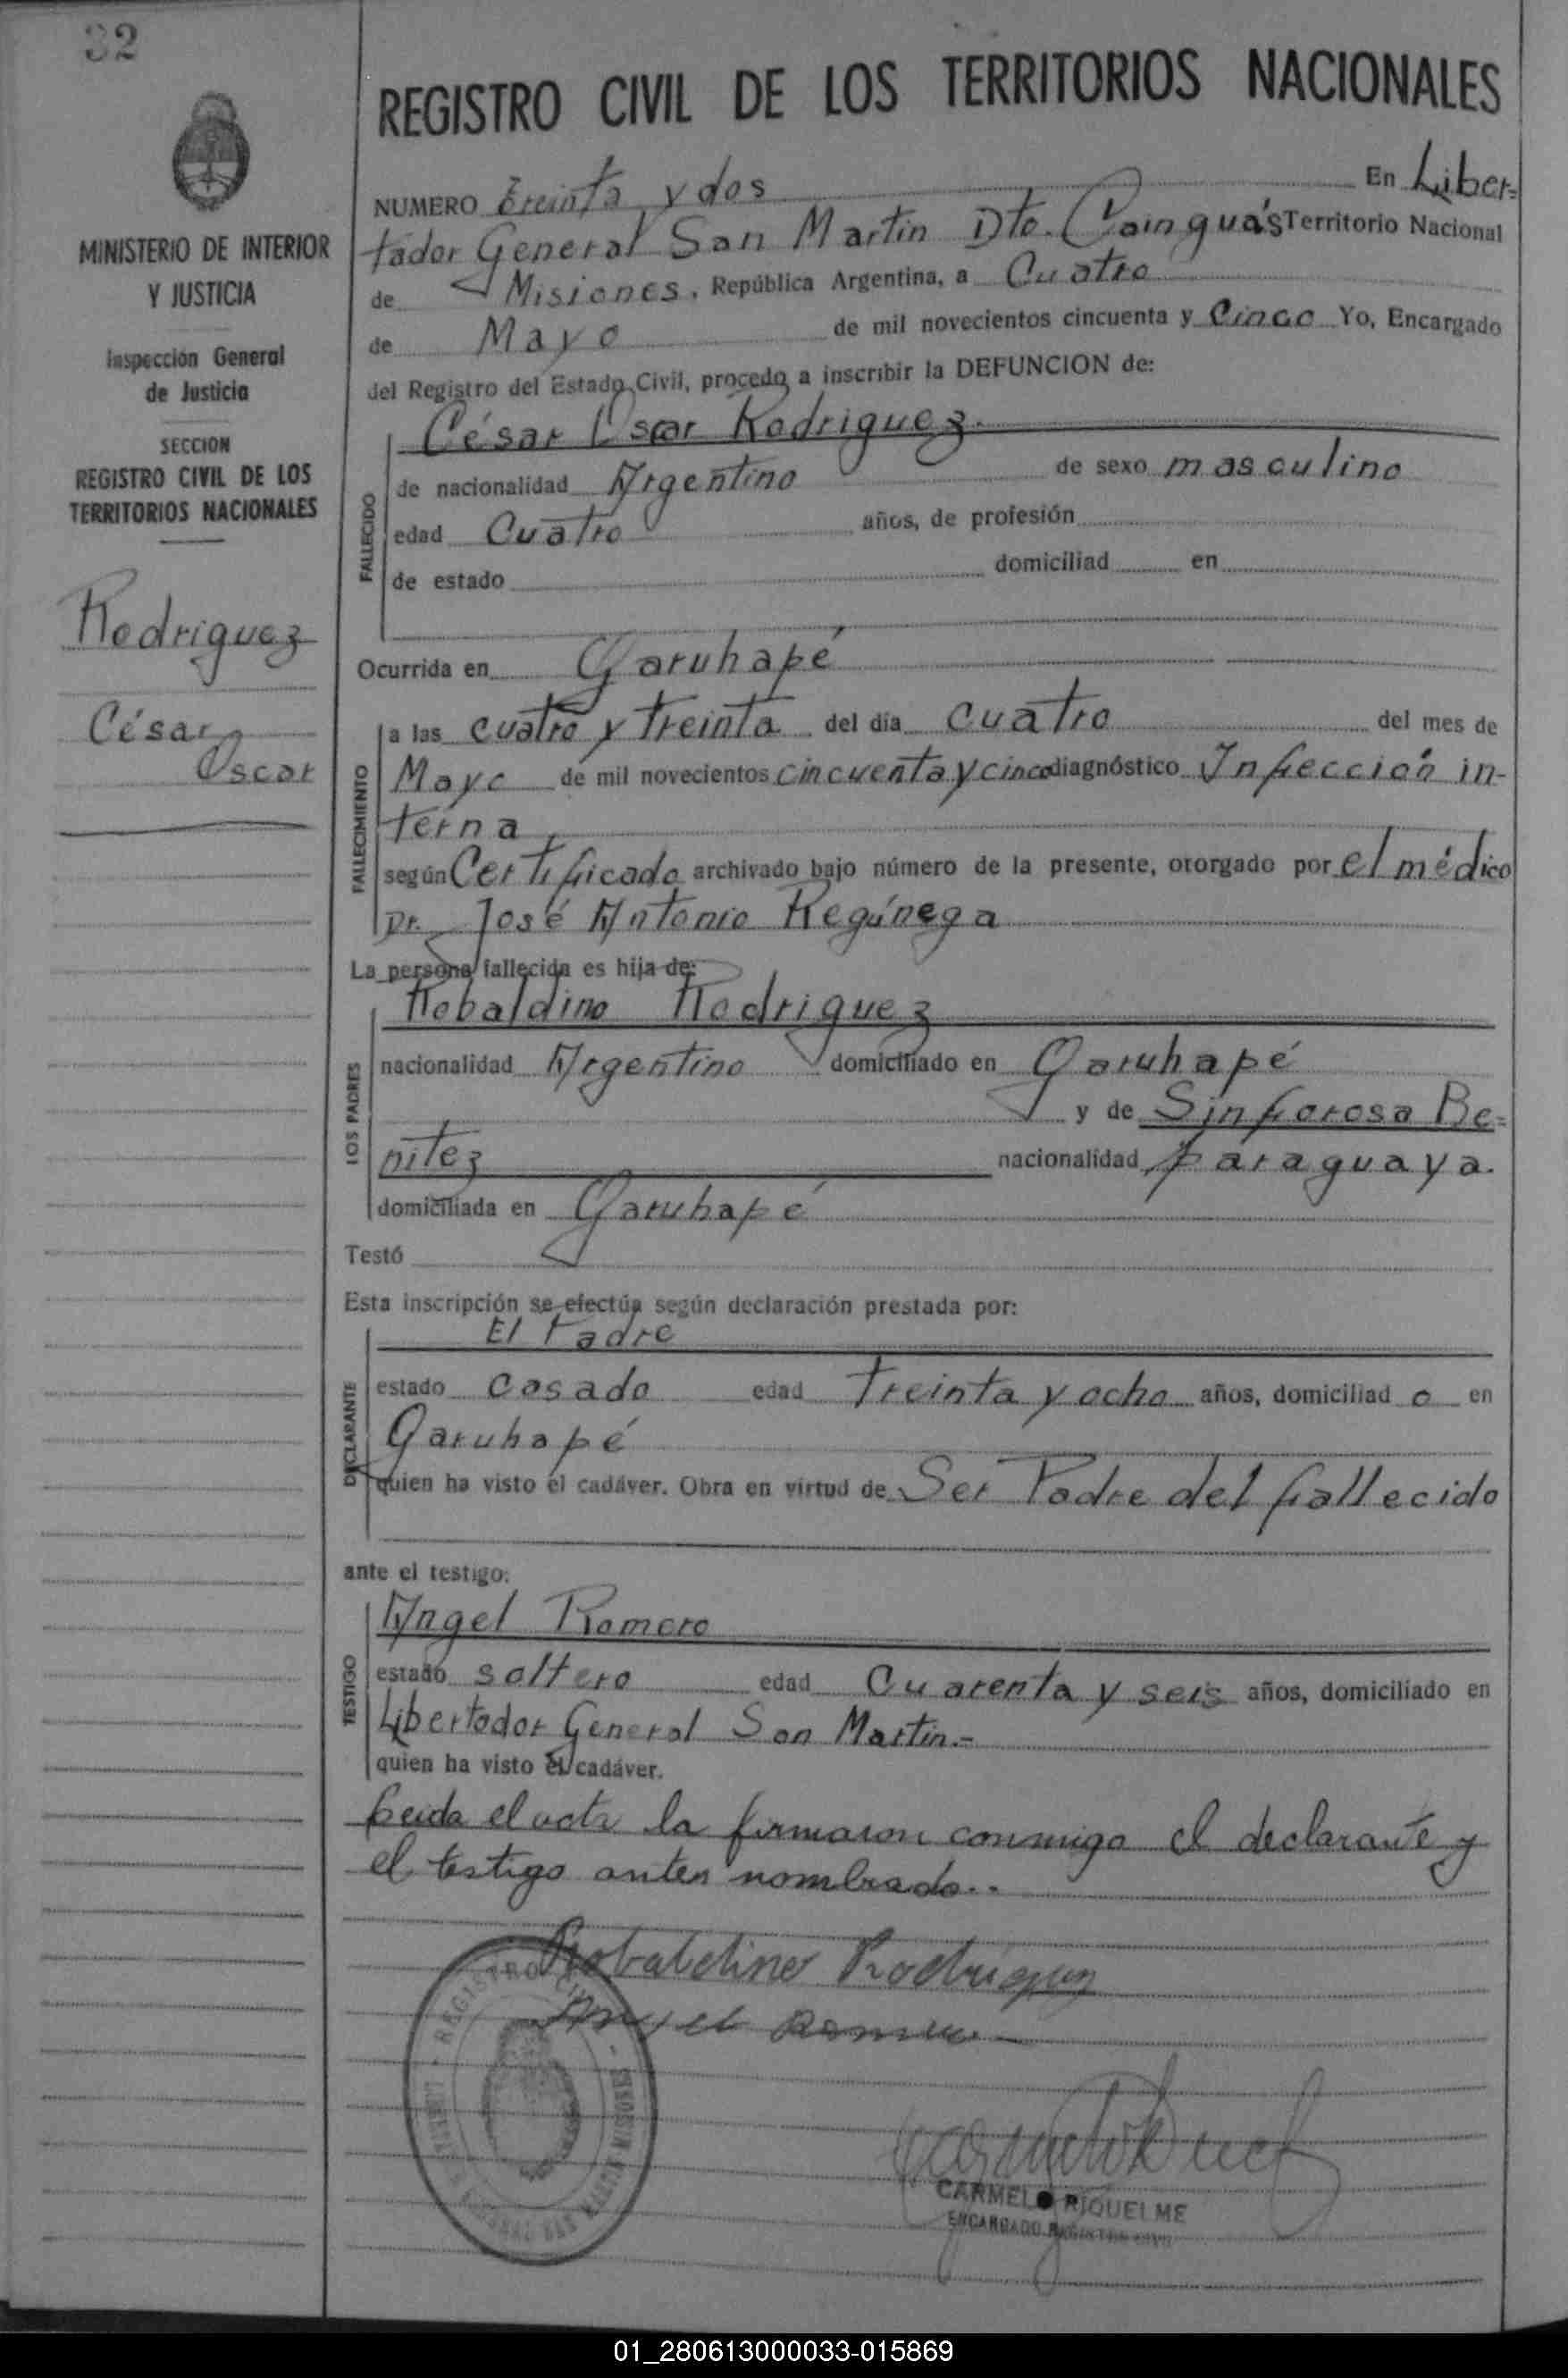 32
MINISTERIO DE INTERIOR
Y JUSTICIA
Inspección General
de Justicia
SECCION
REGISTRO CIVIL DE LOS
TERRITORIOS NACIONALES
Rodriguez
César
Oscar
REGISTRO CIVIL DE LOS TERRITORIOS NACIONALES
NUMERO treinta y dos En Liber=
tador General San Martin Dto. Cainguás Territorio Nacional
de Misiones, República Argentina, a Cuatro
de Mayo de mil novecientos cincuenta y Cinco Yo, Encargado
del Registro del Estado Civil, procedo a inscribir la DEFUNCION de:
César Oscar Rodriguez.
FALLECIDO
de nacionalidad Argentino de sexo masculino
edad Cuatro años, de profesión
de estado domiciliad en
Ocurrida en Garuhapé
FALLECIMIENTO
a las cuatro y treinta del día cuatro del mes de
Mayo de mil novecientos cincuenta y cinco diagnóstico Infección in-
terna
según Certificado archivado bajo número de la presente, otorgado por el médico
Dr. José Antonio Regúnega
La persona fallecida es hija de:
LOS PADRES
Robaldino Rodriguez
nacionalidad Argentino domiciliado en Garuhapé
y de Sinforosa Be=
nitez nacionalidad paraguaya.
domiciliada en Garuhapé
Testó
Esta inscripción se efectúa según declaración prestada por:
DECLARANTE
El Padre
estado casado edad treinta y ocho años, domiciliad o en
Garuhapé
quien ha visto el cadáver. Obra en virtud de Ser Padre del fallecido
ante el testigo:
TESTIGO
Angel Romero
estado soltero edad Cuarenta y seis años, domiciliado en
Libertador General San Martin.-
quien ha visto el cadáver.
Leida el acta la firmaron conmigo el declarante y
el testigo antes nombrado..
Robaldino Rodriguez
Angel Romero
REGISTRO CIVIL
MISIONES
CARMELO RIQUELME
ENCARGADO REGISTRO CIVIL
01_280613000033-015869